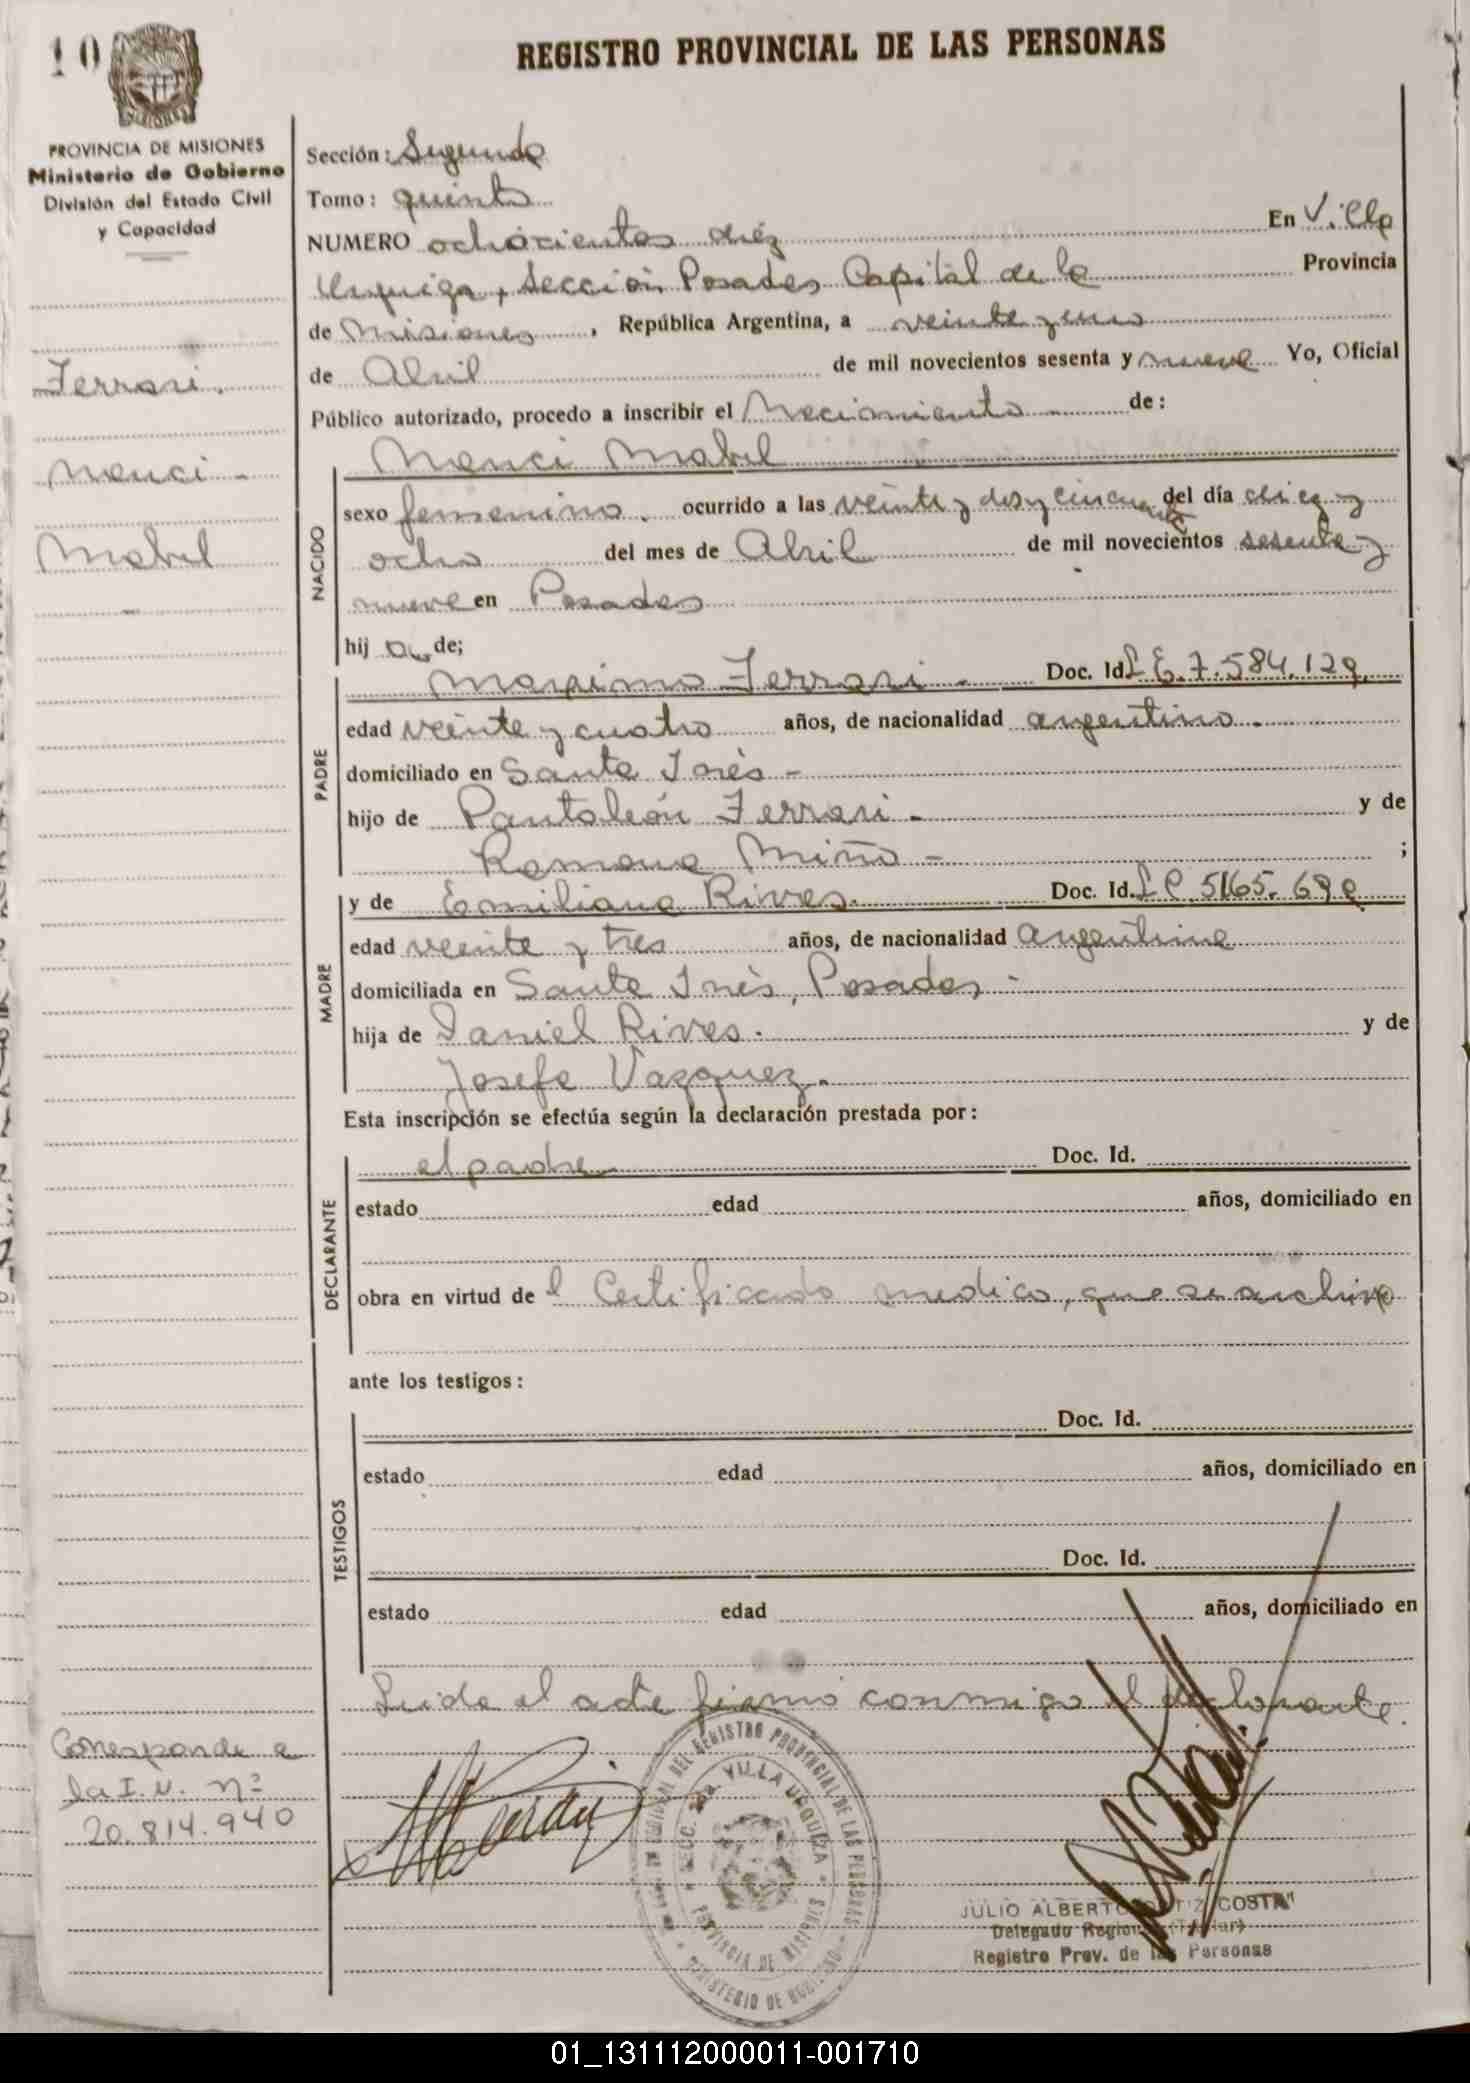 10
REGISTRO PROVINCIAL DE LAS PERSONAS
PROVINCIA DE MISIONES
Ministerio de Gobierno
División del Estado Civil
y Capacidad
Ferrari.
Nenci -
Mabel
Sección: Segunda
Tomo: quinto
NUMERO ochocientos diéz En Villa
Urquiza, Sección Posadas Capital de la Provincia
de Misiones, República Argentina, a veinte y uno
de Abril de mil novecientos sesenta y nueve Yo, Oficial
Público autorizado, procedo a inscribir el Nacimiento - de:
Nenci Mabel
NACIDO
sexo femenino. ocurrido a las veinte y dos y cincuenta del día diez y
ocho del mes de Abril de mil novecientos sesenta y
nueve en Posadas
hij a de;
PADRE
Maximo Ferrari - Doc. Id. L E. 7.584.129
edad veinte y cuatro años, de nacionalidad argentino -
domiciliado en Santa Inés -
hijo de Pantaleón Ferrari - y de
Ramona Miño - ;
MADRE
y de Emiliana Rives. Doc. Id. L C. 5165.69
edad veinte y tres años, de nacionalidad argentina
domiciliada en Santa Inés, Posadas -
hija de Daniel Rives. y de
Josefa Vazquez.
Esta inscripción se efectúa según la declaración prestada por:
DECLARANTE
el padre Doc. Id.
estado edad años, domiciliado en
obra en virtud de l Certificado medico, que se archiva
ante los testigos:
TESTIGOS
Doc. Id.
estado edad años, domiciliado en
Doc. Id.
estado edad años, domiciliado en
Leida el acta firmó conmigo el declarante.
Corresponde a
la I.N. nº
20.814.940
SECC. 2da. VILLA URQUIZA
PROVINCIA DE MISIONES
DEL REGISTRO PROVINCIAL DE LAS PERSONAS
MINISTERIO DE GOBIERNO
JULIO ALBERTO COSTA
Delegado Regional (Titular)
Registro Prov. de las Personas
01_131112000011-001710